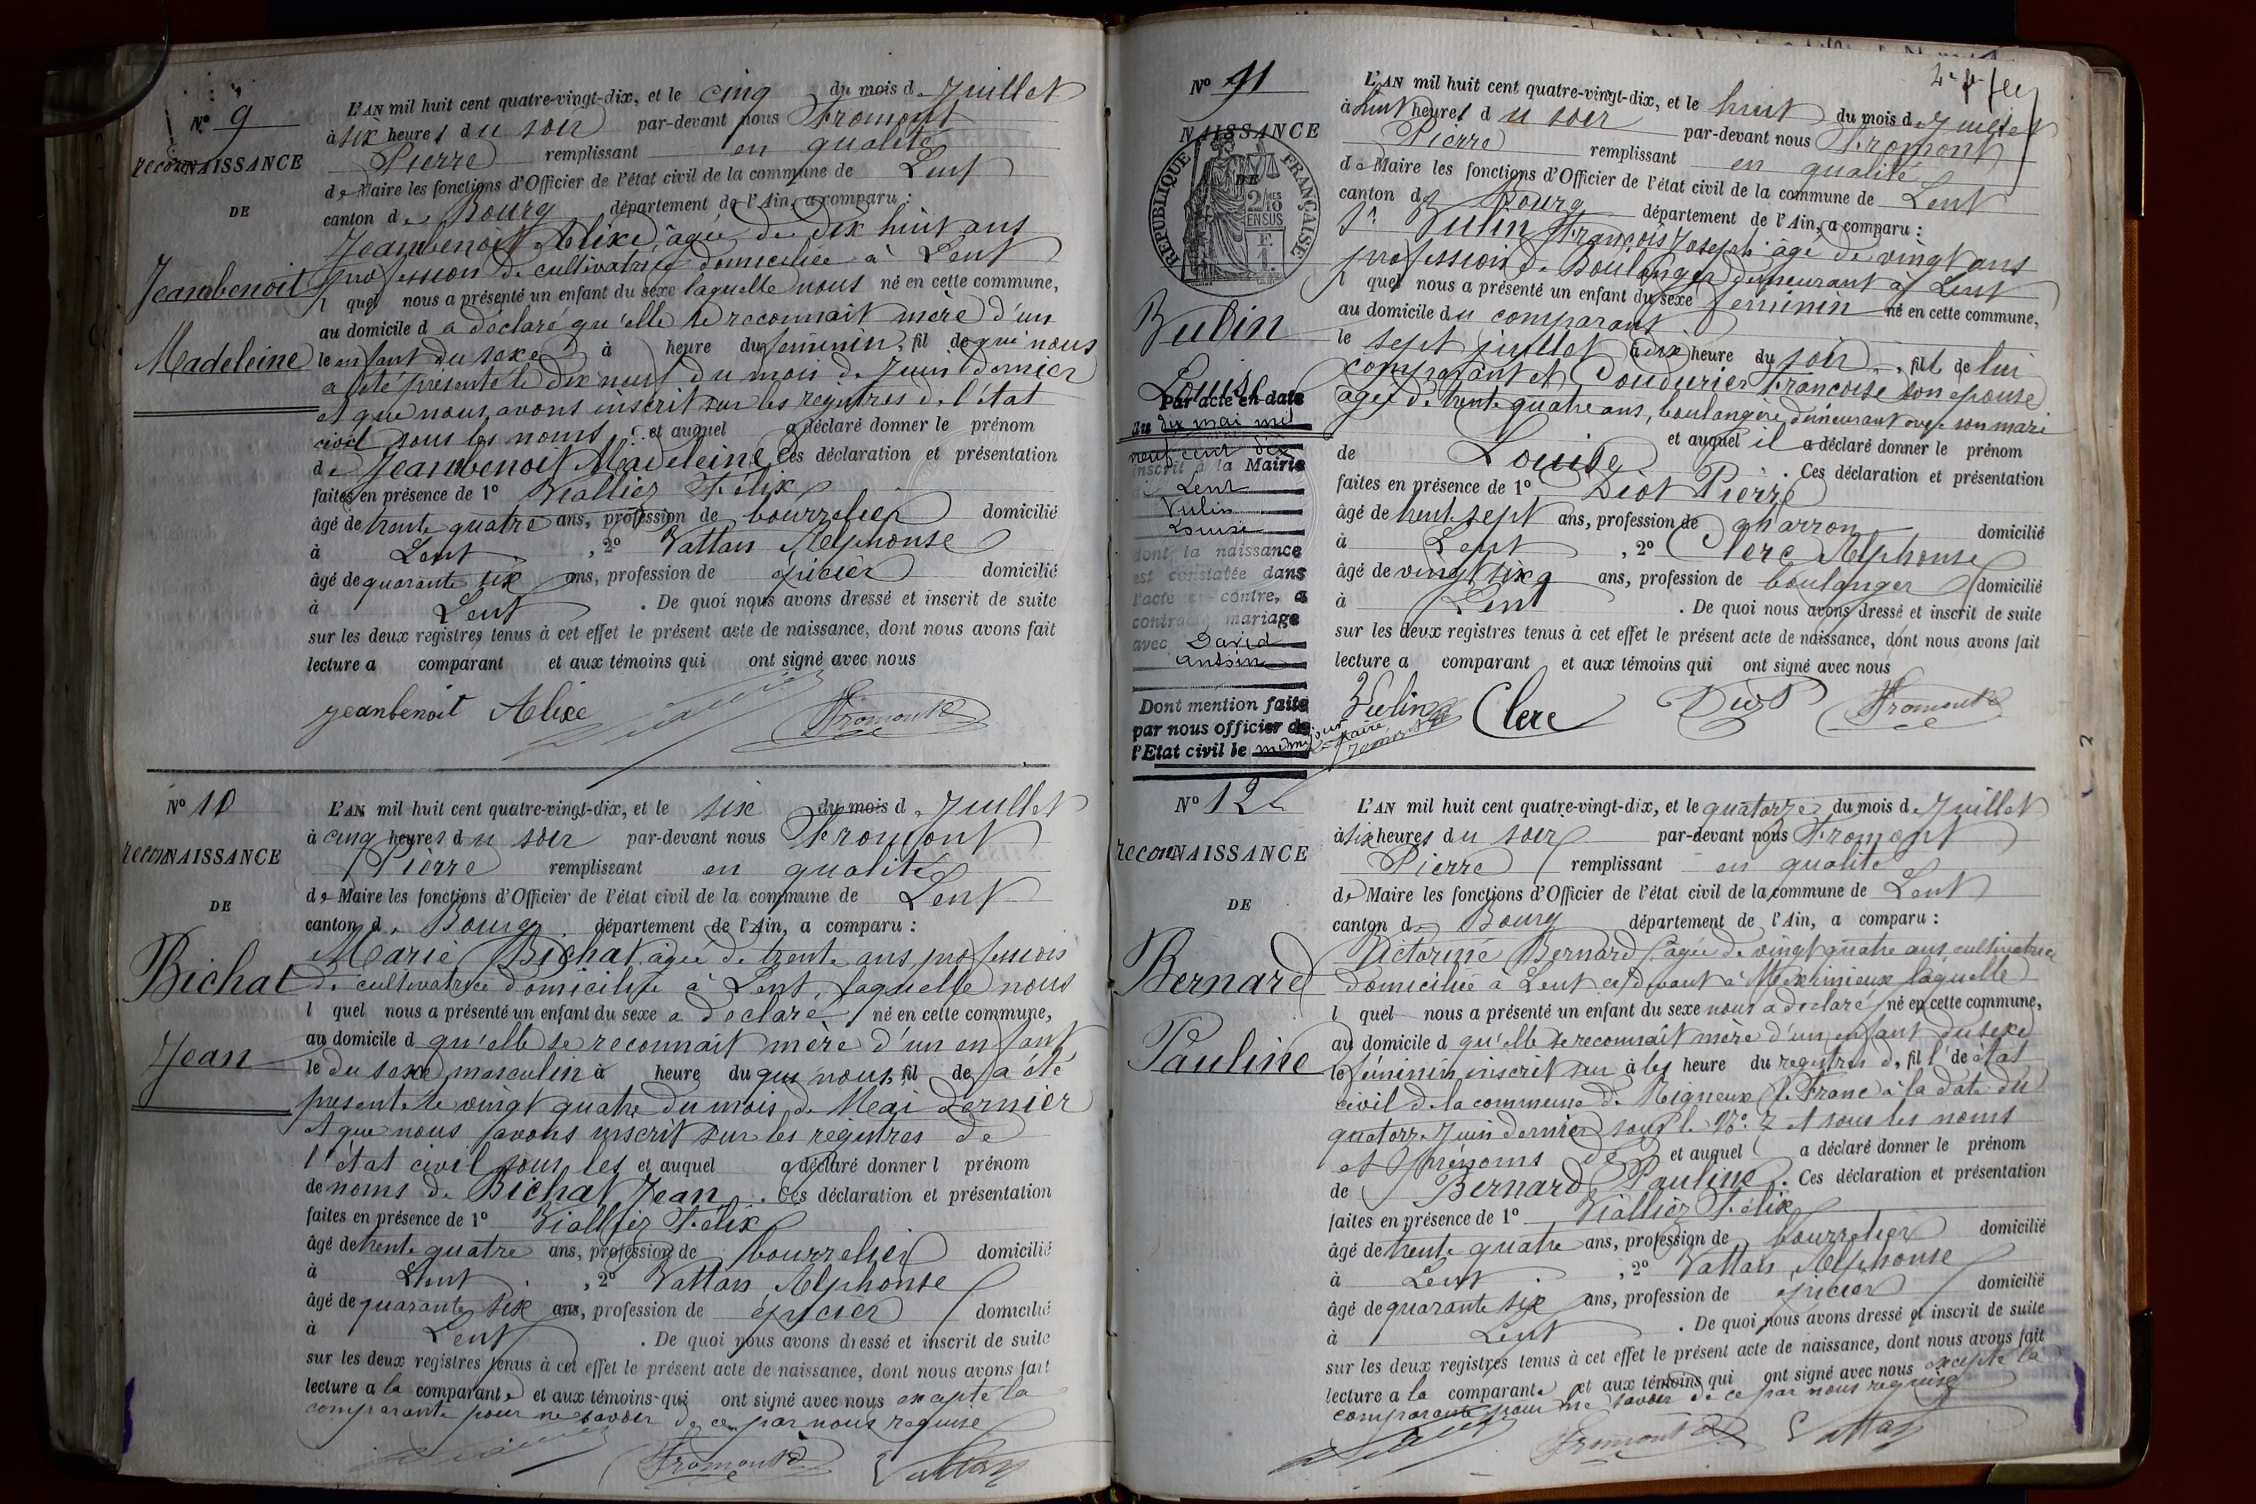 N° 9
reconNAISSANCE
DE
Jeambenoit
Madeleine
L'AN mil huit cent quatre-vingt-dix, et le cinq du mois de Juillet
à six heures du soir par-devant nous Fromont
Pierre remplissant en qualité
de Maire les fonctions d'Officier de l'état civil de la commune de Lent
canton de Bourg département de l'Ain, a comparu :
Jeambenoit Alixe, âgée de dix huit ans
profession de cultivatrice domiciliée à Lent
l quel nous a présenté un enfant du sexe laquelle nous né en cette commune,
au domicile d a déclaré qu'elle se reconnait mère d'un
le enfant du sexe à heure du féminin, fil de qui nous
a été présenté le dix neuf du mois de Juin dernier
et que nous avons inscrit sur les registres de l'état
civil sous les noms et auquel a déclaré donner le prénom
de Jeambenoit Madeleine Ces déclaration et présentation
faites en présence de 1° Viallier Félix
âgé de trente quatre ans, profession de bourrelier domicilié
à Lent , 2° Vattan Alphonse
âgé de quarante six ans, profession de épicier domicilié
à Lent . De quoi nous avons dressé et inscrit de suite
sur les deux registres tenus à cet effet le présent acte de naissance, dont nous avons fait
lecture a comparant et aux témoins qui ont signé avec nous
jeanbenoit Alixe Fromont
N° 10
reconNAISSANCE
DE
Bichat
Jean
L'AN mil huit cent quatre-vingt-dix, et le six du mois de Juillet
à cinq heures du soir par-devant nous Fromont
Pierre remplissant en qualité
de Maire les fonctions d'Officier de l'état civil de la commune de Lent
canton de Bourg département de l'Ain, a comparu :
Marie Bichat, âgée de trente ans, profession
de cultivatrice domiciliée à Lent, laquelle nous
l quel nous a présenté un enfant du sexe a déclaré né en cette commune,
au domicile d qu'elle se reconnait mère d'un enfant
le du sexe masculin à heure du qui nous, fil de a été
présenté le vingt quatre du mois de Mai dernier
et que nous avons inscrit sur les registres de
l'état civil sous les et auquel a déclaré donner l prénom
de noms de Bichat Jean . Ces déclaration et présentation
faites en présence de 1° Viallier Félix
âgé de trente quatre ans, profession de bourrelier domicilié
à Lent , 2° Vattan Alphonse
âgé de quarante six ans, profession de épicier domicilié
à Lent . De quoi nous avons dressé et inscrit de suite
sur les deux registres tenus à cet effet le présent acte de naissance, dont nous avons fait
lecture a la comparante et aux témoins qui ont signé avec nous excepté la
comparante pour ne savoir de ce par nous requise
Fromont Vattan
N° 11
NAISSANCE
DE
REPUBLIQUE FRANÇAISE
2/10 EN SUS
Vulin
Louise
Par acte en date
du dix mai mil
neuf cent dix
inscrit à la Mairie
de Lent
Vulin
Louise
dont la naissance
est constatée dans
l'acte ci-contre, a
contracté mariage
avec David
Antoine
Dont mention faite
par nous officier de
l'Etat civil le même jour
L'AN mil huit cent quatre-vingt-dix, et le huit du mois de Juillet
à huit heures du soir par-devant nous Fromont
Pierre remplissant en qualité
de Maire les fonctions d'Officier de l'état civil de la commune de Lent
canton de Bourg département de l'Ain, a comparu :
Sr Vulin François Joseph âgé de vingt ans
profession de Boulanger demeurant à Lent
l quel nous a présenté un enfant du sexe féminin né en cette commune,
au domicile du comparant
le sept juillet à six heure du soir, fille de lui
comparant et Coudurier Françoise son épouse
agée de trente quatre ans, boulangère, demeurant avec son mari
et auquel il a déclaré donner le prénom
de Louise . Ces déclaration et présentation
faites en présence de 1° Diot Pierre
âgé de trente sept ans, profession de charron domicilié
à Lent , 2° Clerc Alphonse
âgé de vingt six ans, profession de boulanger domicilié
à Lent . De quoi nous avons dressé et inscrit de suite
sur les deux registres tenus à cet effet le présent acte de naissance, dont nous avons fait
lecture a comparant et aux témoins qui ont signé avec nous
Vulin Clerc Diot Fromont
N° 12
reconNAISSANCE
DE
Bernard
Pauline
L'AN mil huit cent quatre-vingt-dix, et le quatorze du mois de Juillet
à six heures du soir par-devant nous Fromont
Pierre remplissant en qualité
de Maire les fonctions d'Officier de l'état civil de la commune de Lent
canton de Bourg département de l'Ain, a comparu :
Victorine Bernard âgée de vingt quatre ans, cultivatrice
domiciliée à Lent ci-devant à Meximieux laquelle
l quel nous a présenté un enfant du sexe nous a déclaré né en cette commune,
au domicile d qu'elle se reconnait mère d'un enfant du sexe
le féminin inscrit sur à les heure du registres de, fil l' de état
civil de la commune de Rigneux le Franc à la date du
quatorze Juin dernier sous le N° 7 et sous les noms
et prénoms de et auquel a déclaré donner le prénom
de Bernard Pauline . Ces déclaration et présentation
faites en présence de 1° Viallier Félix
âgé de trente quatre ans, profession de bourrelier domicilié
à Lent , 2° Vattan Alphonse
âgé de quarante six ans, profession de épicier domicilié
à Lent . De quoi nous avons dressé et inscrit de suite
sur les deux registres tenus à cet effet le présent acte de naissance, dont nous avons fait
lecture a la comparante et aux témoins qui ont signé avec nous excepté la
comparante pour ne savoir de ce par nous requise
Fromont Vattan